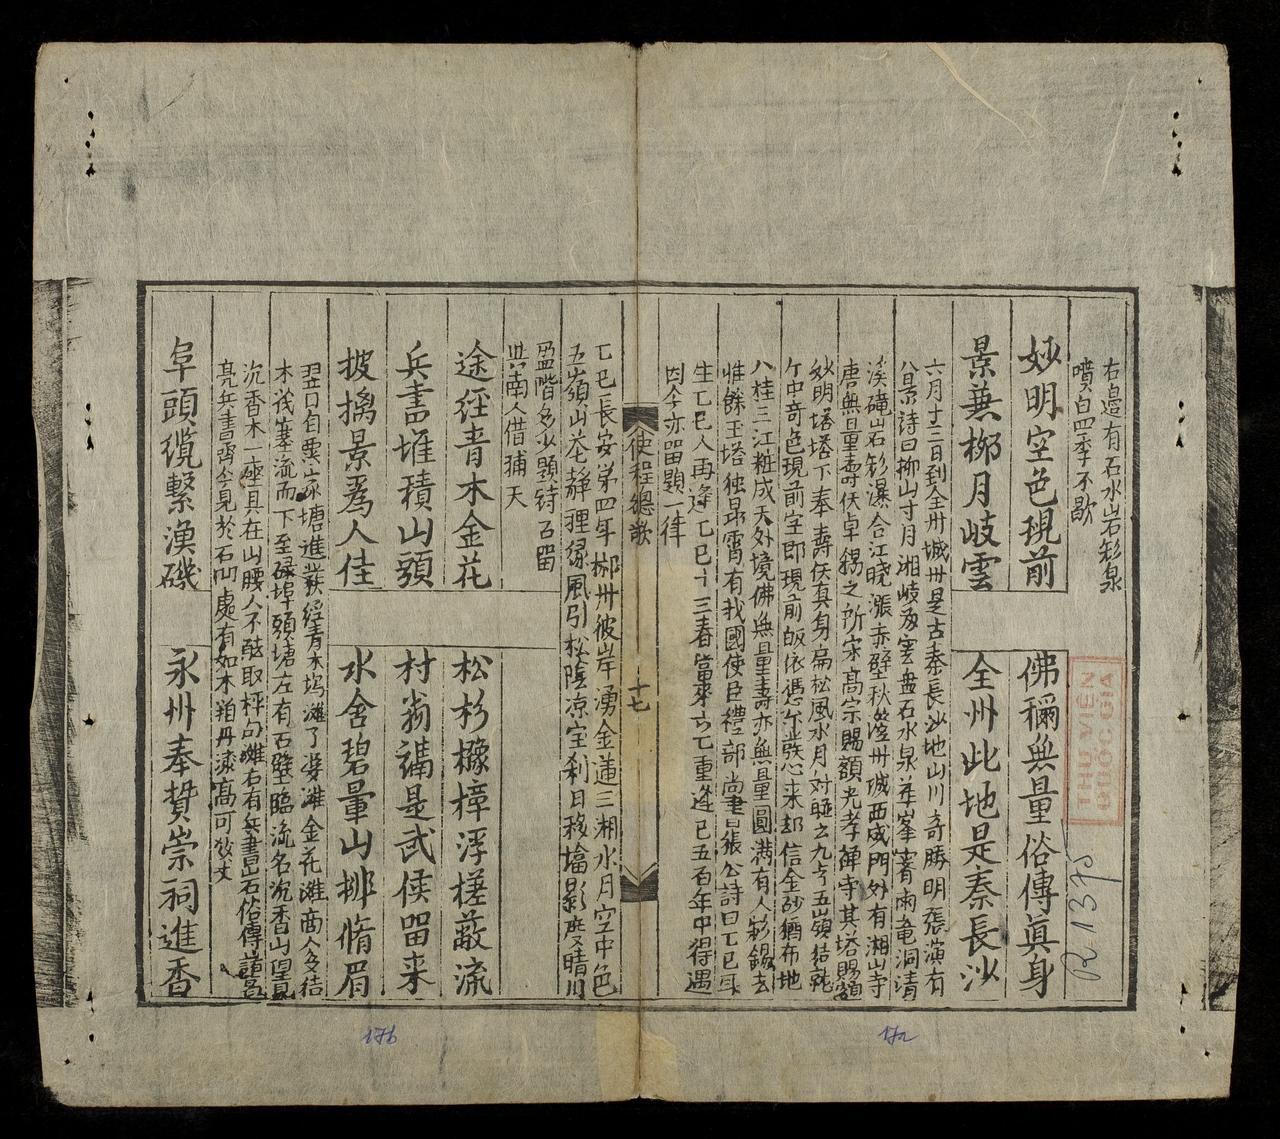 右邉有石水岩彩泉
噴白四季不歇
妙明空色現前 佛稱無量俗傳眞身
景兼柳月岐雲 全州此地是秦長沙
六月十三日到全州城州是古秦長沙地山川奇勝明張演有
八景詩曰柳山寸月湘岐
溪磝岩彩瀑合江曉漲赤壁秋
州城西成門外有湘山寺
唐無量壽伏卓錫之所宋高宗賜額光孝禅寺其塔賜額
妙明塔塔下奉壽佛真身扁松風水月
五嶺
中奇色現前字即現前皈依
来却信金砂猶布地
八桂三江粧成天外境佛無量壽亦無量圓満有人彩錫去
惟餘玉塔独
霄有我國使臣禮部尚書張公詩曰乙巳
生乙巳人再逢乙巳十三春
六乙重逢已五百年中得遇
因今亦留題一律
使程總歌
十七
乙巳長安第四年
州彼岸湧金蓮三湘水月空中色
五嶺山花静裡
風引松陰凉宝刹日移
影
晴川
盈階多少題詩石留
與南人借補天
途經青木金花 松杉櫞樟浮槎蔽流
兵書堆積山頭 村翁講是武侯留来
披擒景爲人佳 水舍碧暈山挪脩眉
翌日自
塘進
經青木塢灘了婆灘金花灘商人多結
木筏塞流而下至碌埠頭塘左有石壁臨流名沉香山望見
沉香木一座具在山腰人不
取枰勾灘右有兵書
石俗傳諸葛
亮兵書
今見於石凹處有如木箱丹漆高可数丈
阜頭纜繫漁磯 永州奉贊崇祠進香
THƯ VIỆN
QUỐC GIA
R.1375
17a
17b